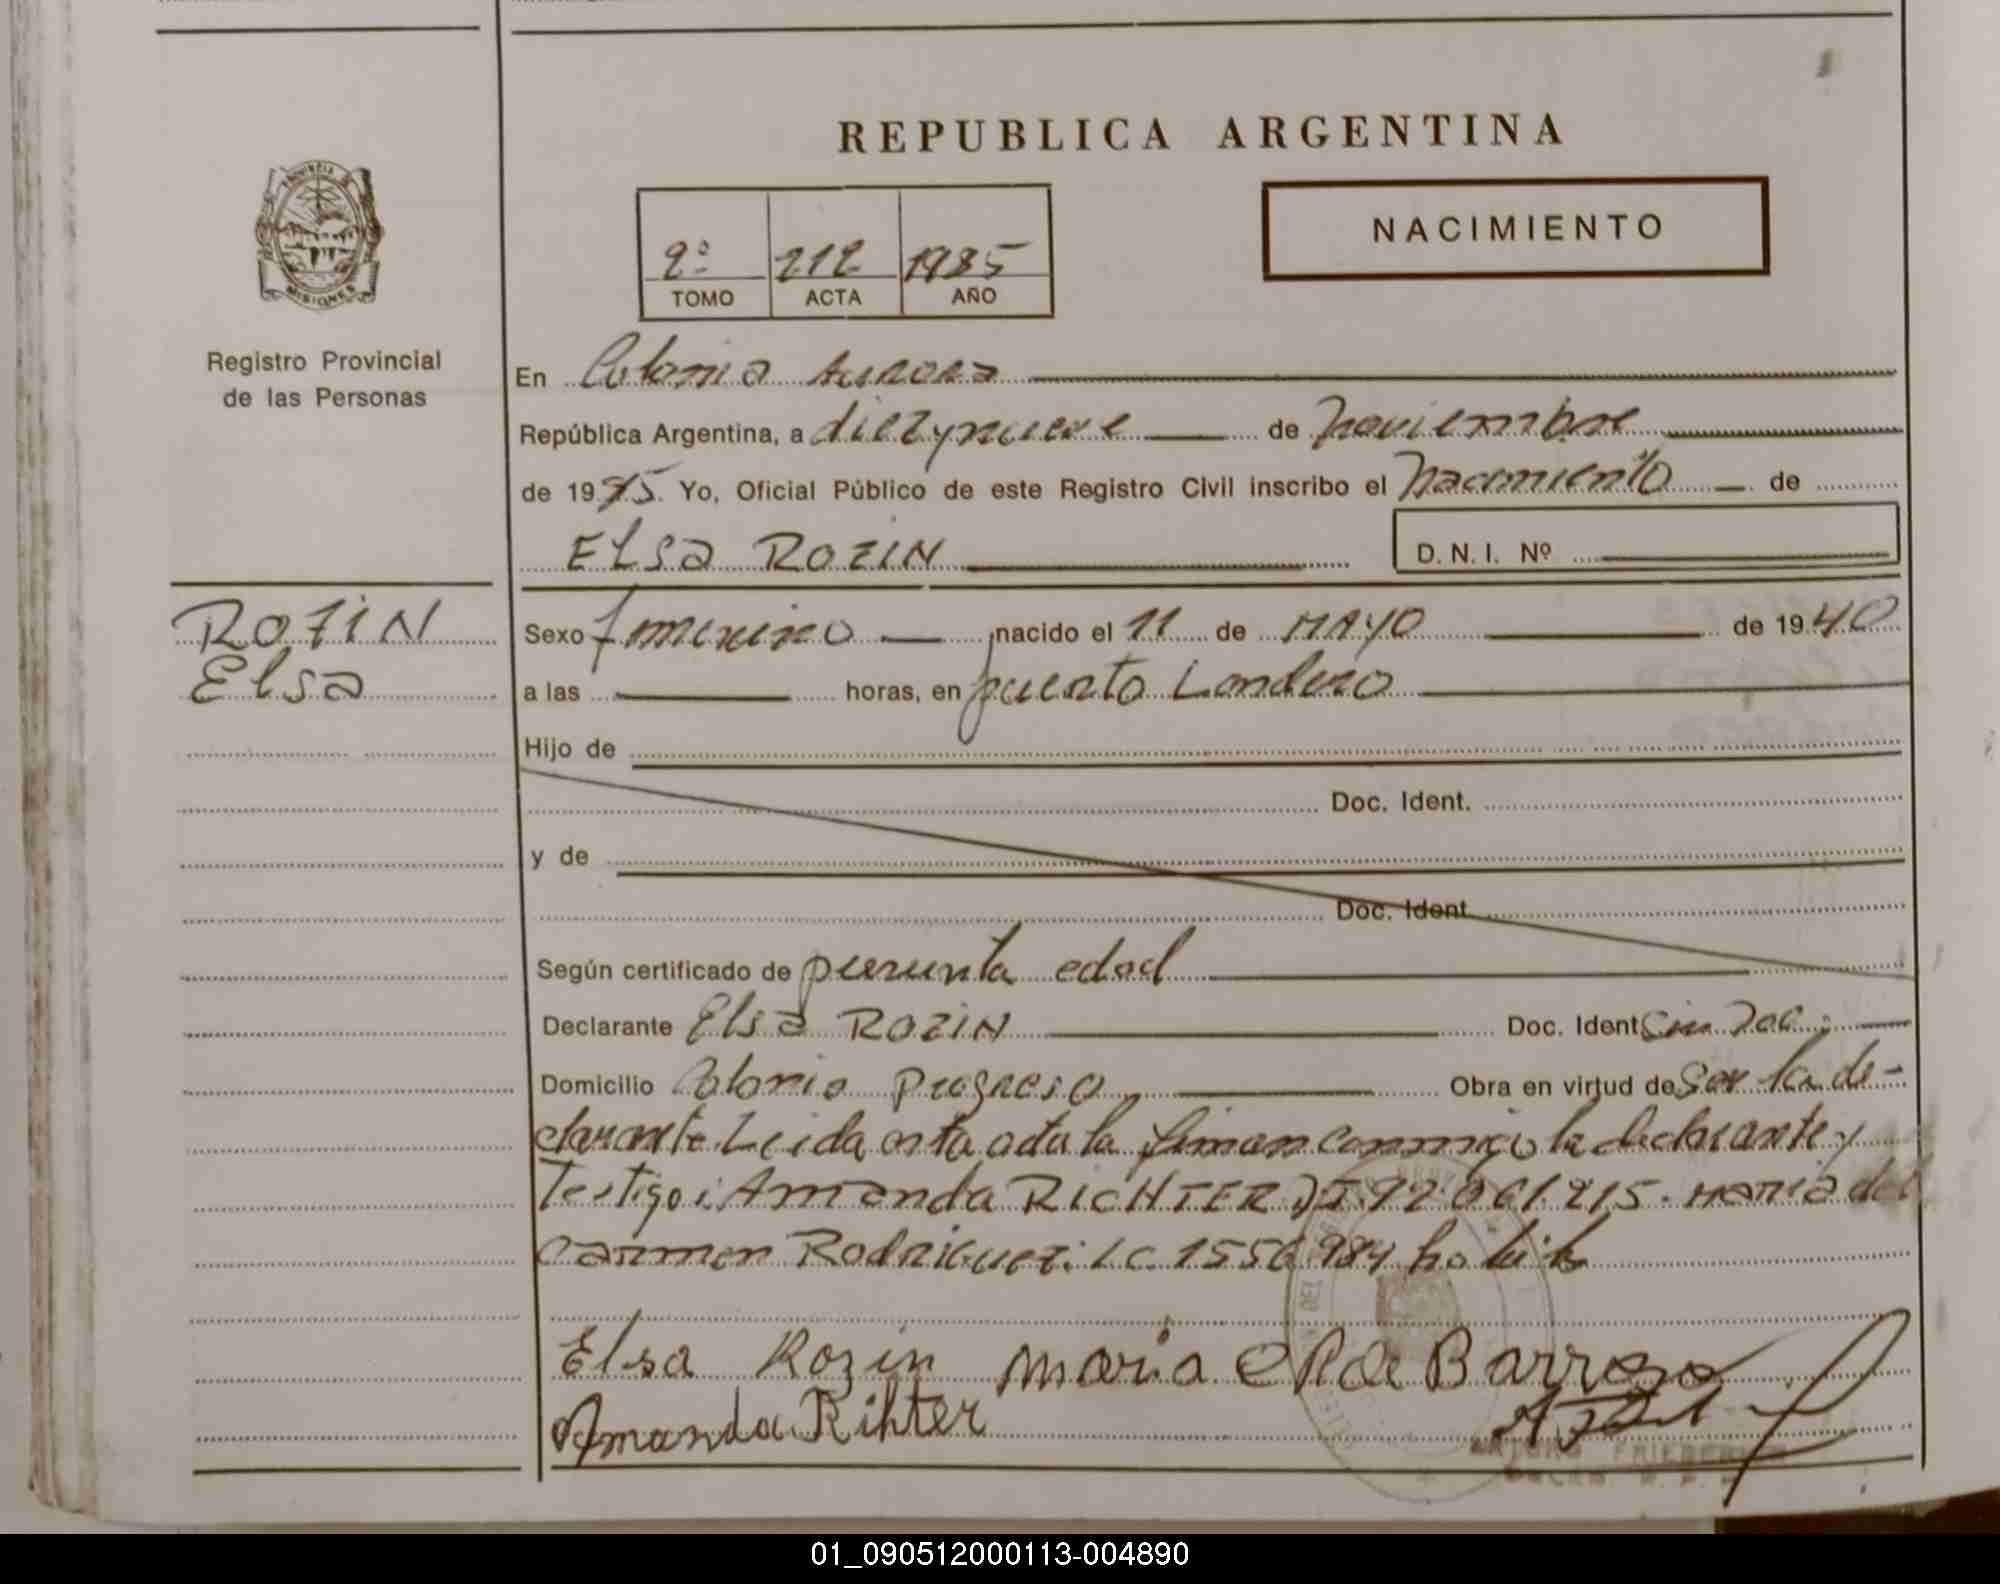 REPUBLICA ARGENTINA
NACIMIENTO
2º 212 1985
TOMO ACTA AÑO
MISIONES
Registro Provincial
de las Personas
En Colonia Aurora
República Argentina, a diezynueve de noviembre
de 1985. Yo, Oficial Público de este Registro Civil inscribo el Nacimiento de
ELSA ROZIN D.N.I. Nº
ROZIN
Elsa
Sexo femenino nacido el 11 de MAYO de 1940
a las horas, en puerto Londero
Hijo de
Doc. Ident.
y de
Doc. Ident.
Según certificado de presunta edad
Declarante Elsa ROZIN Doc. Ident Sin Doc.
Domicilio Colonia Progreso Obra en virtud de Ser la de-
clarante Leida esta acta la firman conmigo la declarante y
Testigo: Amanda RICHTER DI 92.061.215. MARIA del
Carmen Rodriguez: LC 1556984 habil
Elsa Rozin Maria C R de Barroso
Amanda Rihter
01_090512000113-004890